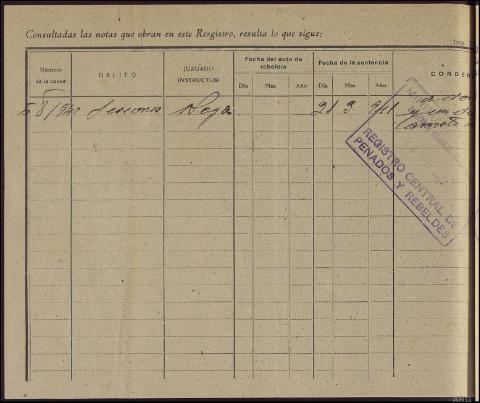 Consultadas las notas que obran en este Resgistro, resulta lo que sigue:
Número de la causa
DELITO
JUZGADO INSTRUCTOR
Fecha del auto de rebeldía
Día Mes Año
Fecha de la sentencia
Día Mes Año
CONDEN
8/940 Lesiones Noya 21 3 941
REGISTRO CENTRAL DE
PENADOS Y REBELDES
ARG